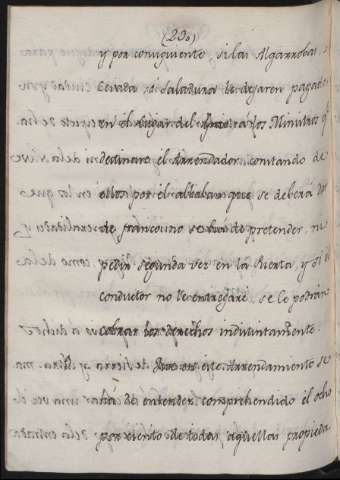 (23.)
y por consiguiente, si las Algarrobas,
Cevada, ó Saladuras se dejaren pagados
en el lugar del á los Ministros q.e
destinare el Arrendador, constando de
ellos por el albalan que se deberá dar
de franco; no se ha de pretender, ni
pedir segunda vez en la Puerta, y si el
conductor no le entregáre, se le podrán
cobrar los derechos indistintam.te
Que en este Arrendamiento se
há de entender comprehendido el ocho
por ciento de todas aquellas propieda